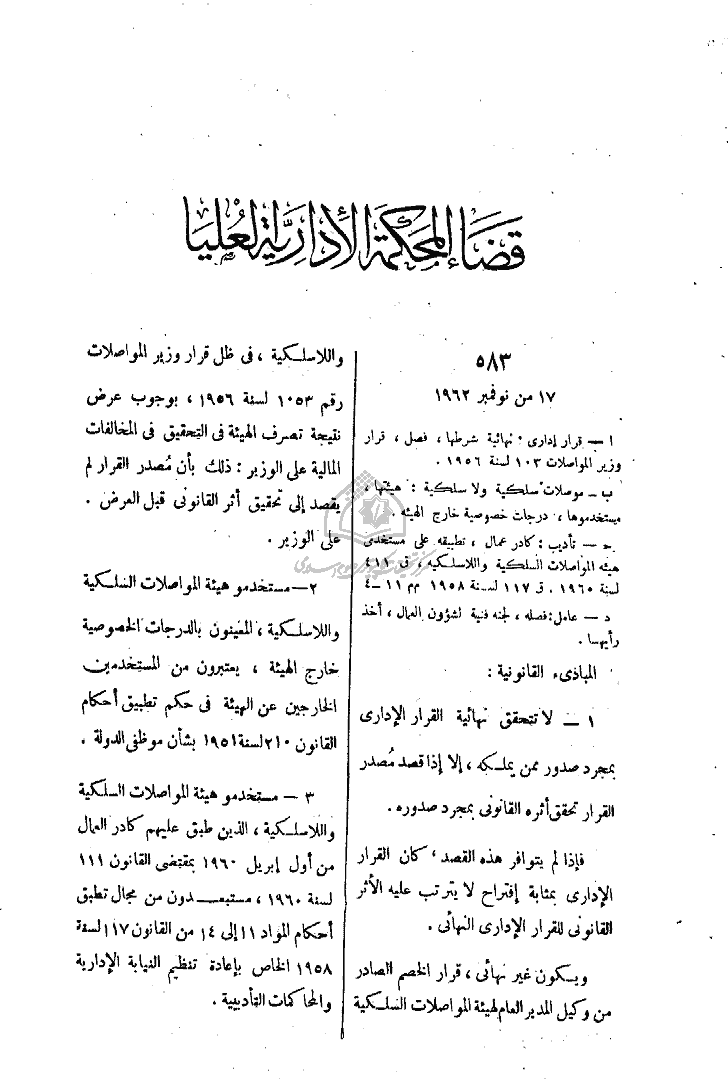 قضاء المحكمة الإدارية العليا
٥٨٣
١٧ من نوفمبر ١٩٦٢
ا — قرار إدارى : نهائية شرطها ، فصل ، قرار
وزير المواصلات ١٠٣ لسنة ١٩٥٦ .
ب — موصلات سلكية ولا سلكية : هيئتها ،
مستخدموها ، درجات خصوصية خارج الهيئه .
حـ — تأديب : كادر عمال ، تطبيقه على مستخدمى
هيئة المواصلات السلكية واللاسلكيه ، ق ٤١١
لسنة ١٩٦٠ . ق ١١٧ لسنة ١٩٥٨ مم ١١ — ٤
د — عامل : فصله ، لجنه فنية لشؤون العمال ، أخذ
رأيها .
المباذىء القانونية :
١ — لا تتحقق نهائية القرار الإدارى
بمجرد صدور ممن يملكه ، إلا إذا قصد مُصدر
القرار تحقق أثره القانونى بمجرد صدوره .
فإذا لم يتوافر هذه القصد ، كان القرار
الإدارى بمثابة إقتراح لا يترتب عليه الأثر
القانونى للقرار الإدارى النهائى .
ويسكون غير نهائى ، قرار الخصم الصادر
من وكيل المدير العام لهيئة المواصلات السلكية
واللاسلكية ، فى ظل قرار وزير المواصلات
رقم ١٠٥٣ لسنة ١٩٥٦ ، بوجوب عرض
نتيجة تصرف الهيئة فى التحقيق فى المخالفات
المالية على الوزير : ذلك بأن مُصدر القرار لم
يقصد إلى تحقيق أثر القانونى قبل العرض .
على الوزير .
٢ — مستخدمو هيئة المواصلات السلكية
واللاسلكية ، المعينون بالدرجات الخصوصية
خارج الهيئة ، يعتبرون من المستخدمين
الخارجين عن الهيئة فى حكم تطبيق أحكام
القانون ٢١٠ لسنة ١٩٥١ بشأن موظفى الدولة .
٣ — مستخدمو هيئة المواصلات السلكية
واللاسلكية ، الذين طبق عليهم كادر العمال
من أول إبريل ١٩٦٠ بمقتضى القانون ١١١
لسنة ١٩٦٠ ، مستبعدون من مجال تطبق
أحكام المواد ١١ إلى ١٤ من القانون ١١٧ لسنة
١٩٥٨ الخاص بإعادة تنظيم النيابة الإدارية
والمحاكمات التأديبية .